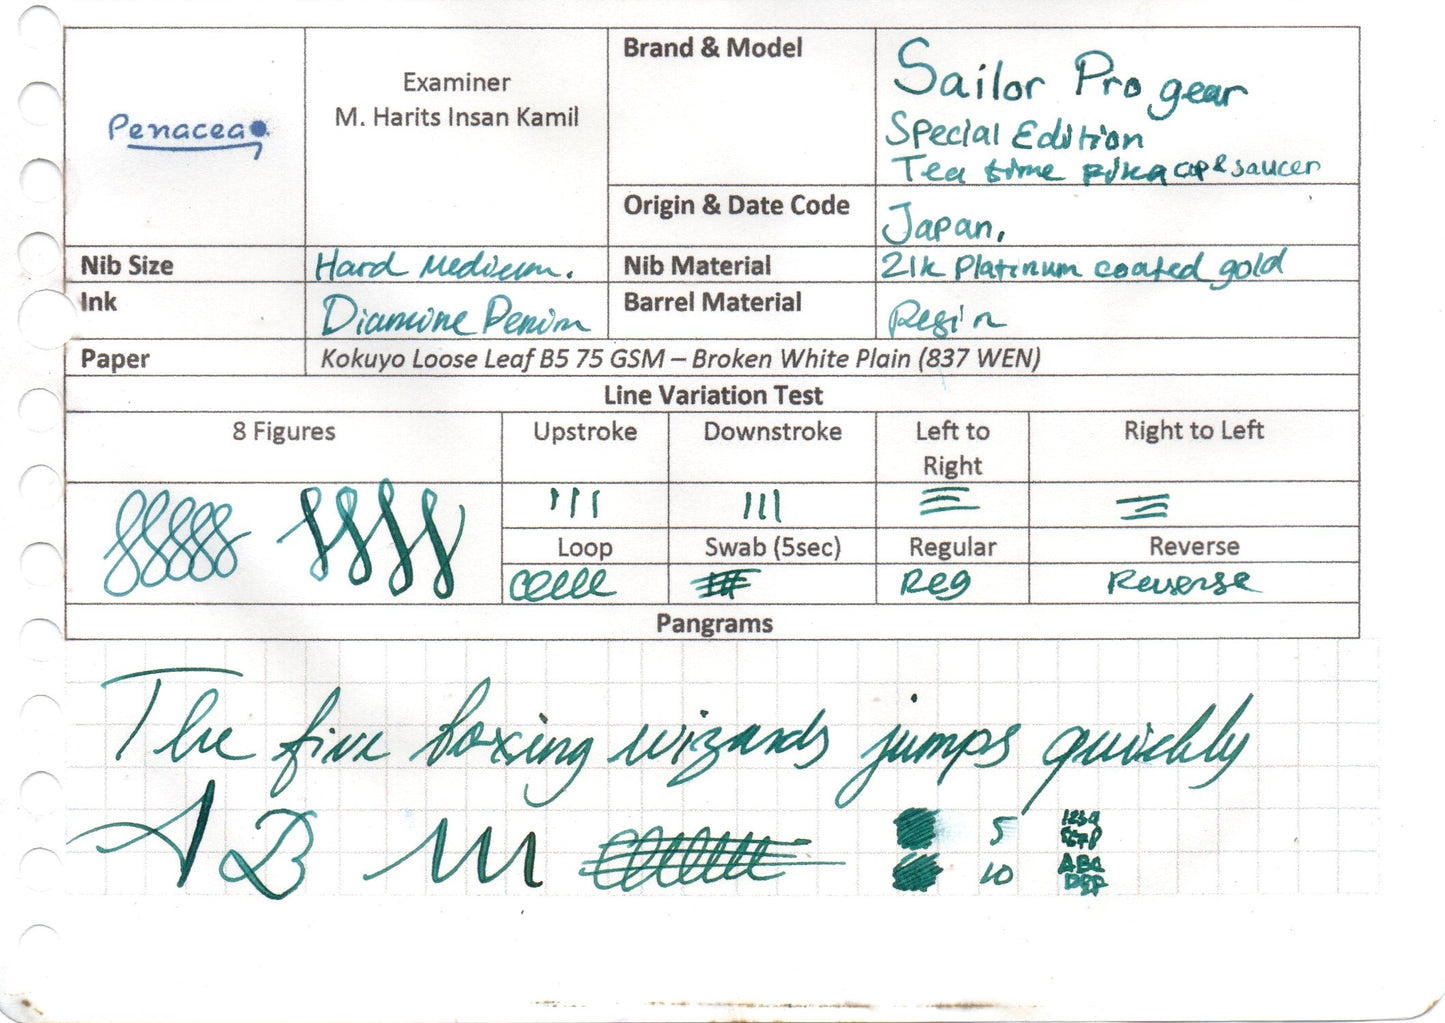 Penacea
Examiner
M. Harits Insan Kamil
Brand & Model
Sailor Pro gear
Special Edition
Tea time cup & saucer
Origin & Date Code
Japan,
Nib Size
Hard Medium.
Nib Material
21k Platinum coated gold
Ink
Diamine Denim
Barrel Material
Resin
Paper
Kokuyo Loose Leaf B5 75 GSM – Broken White Plain (837 WEN)
Line Variation Test
8 Figures
Upstroke
Downstroke
Left to
Right
Right to Left
Loop
Swab (5sec)
Regular
Reverse
Reg
Reverse
Pangrams
The five boxing wizards jumps quickly
A B
5
10
1234
5678
ABC
DEF